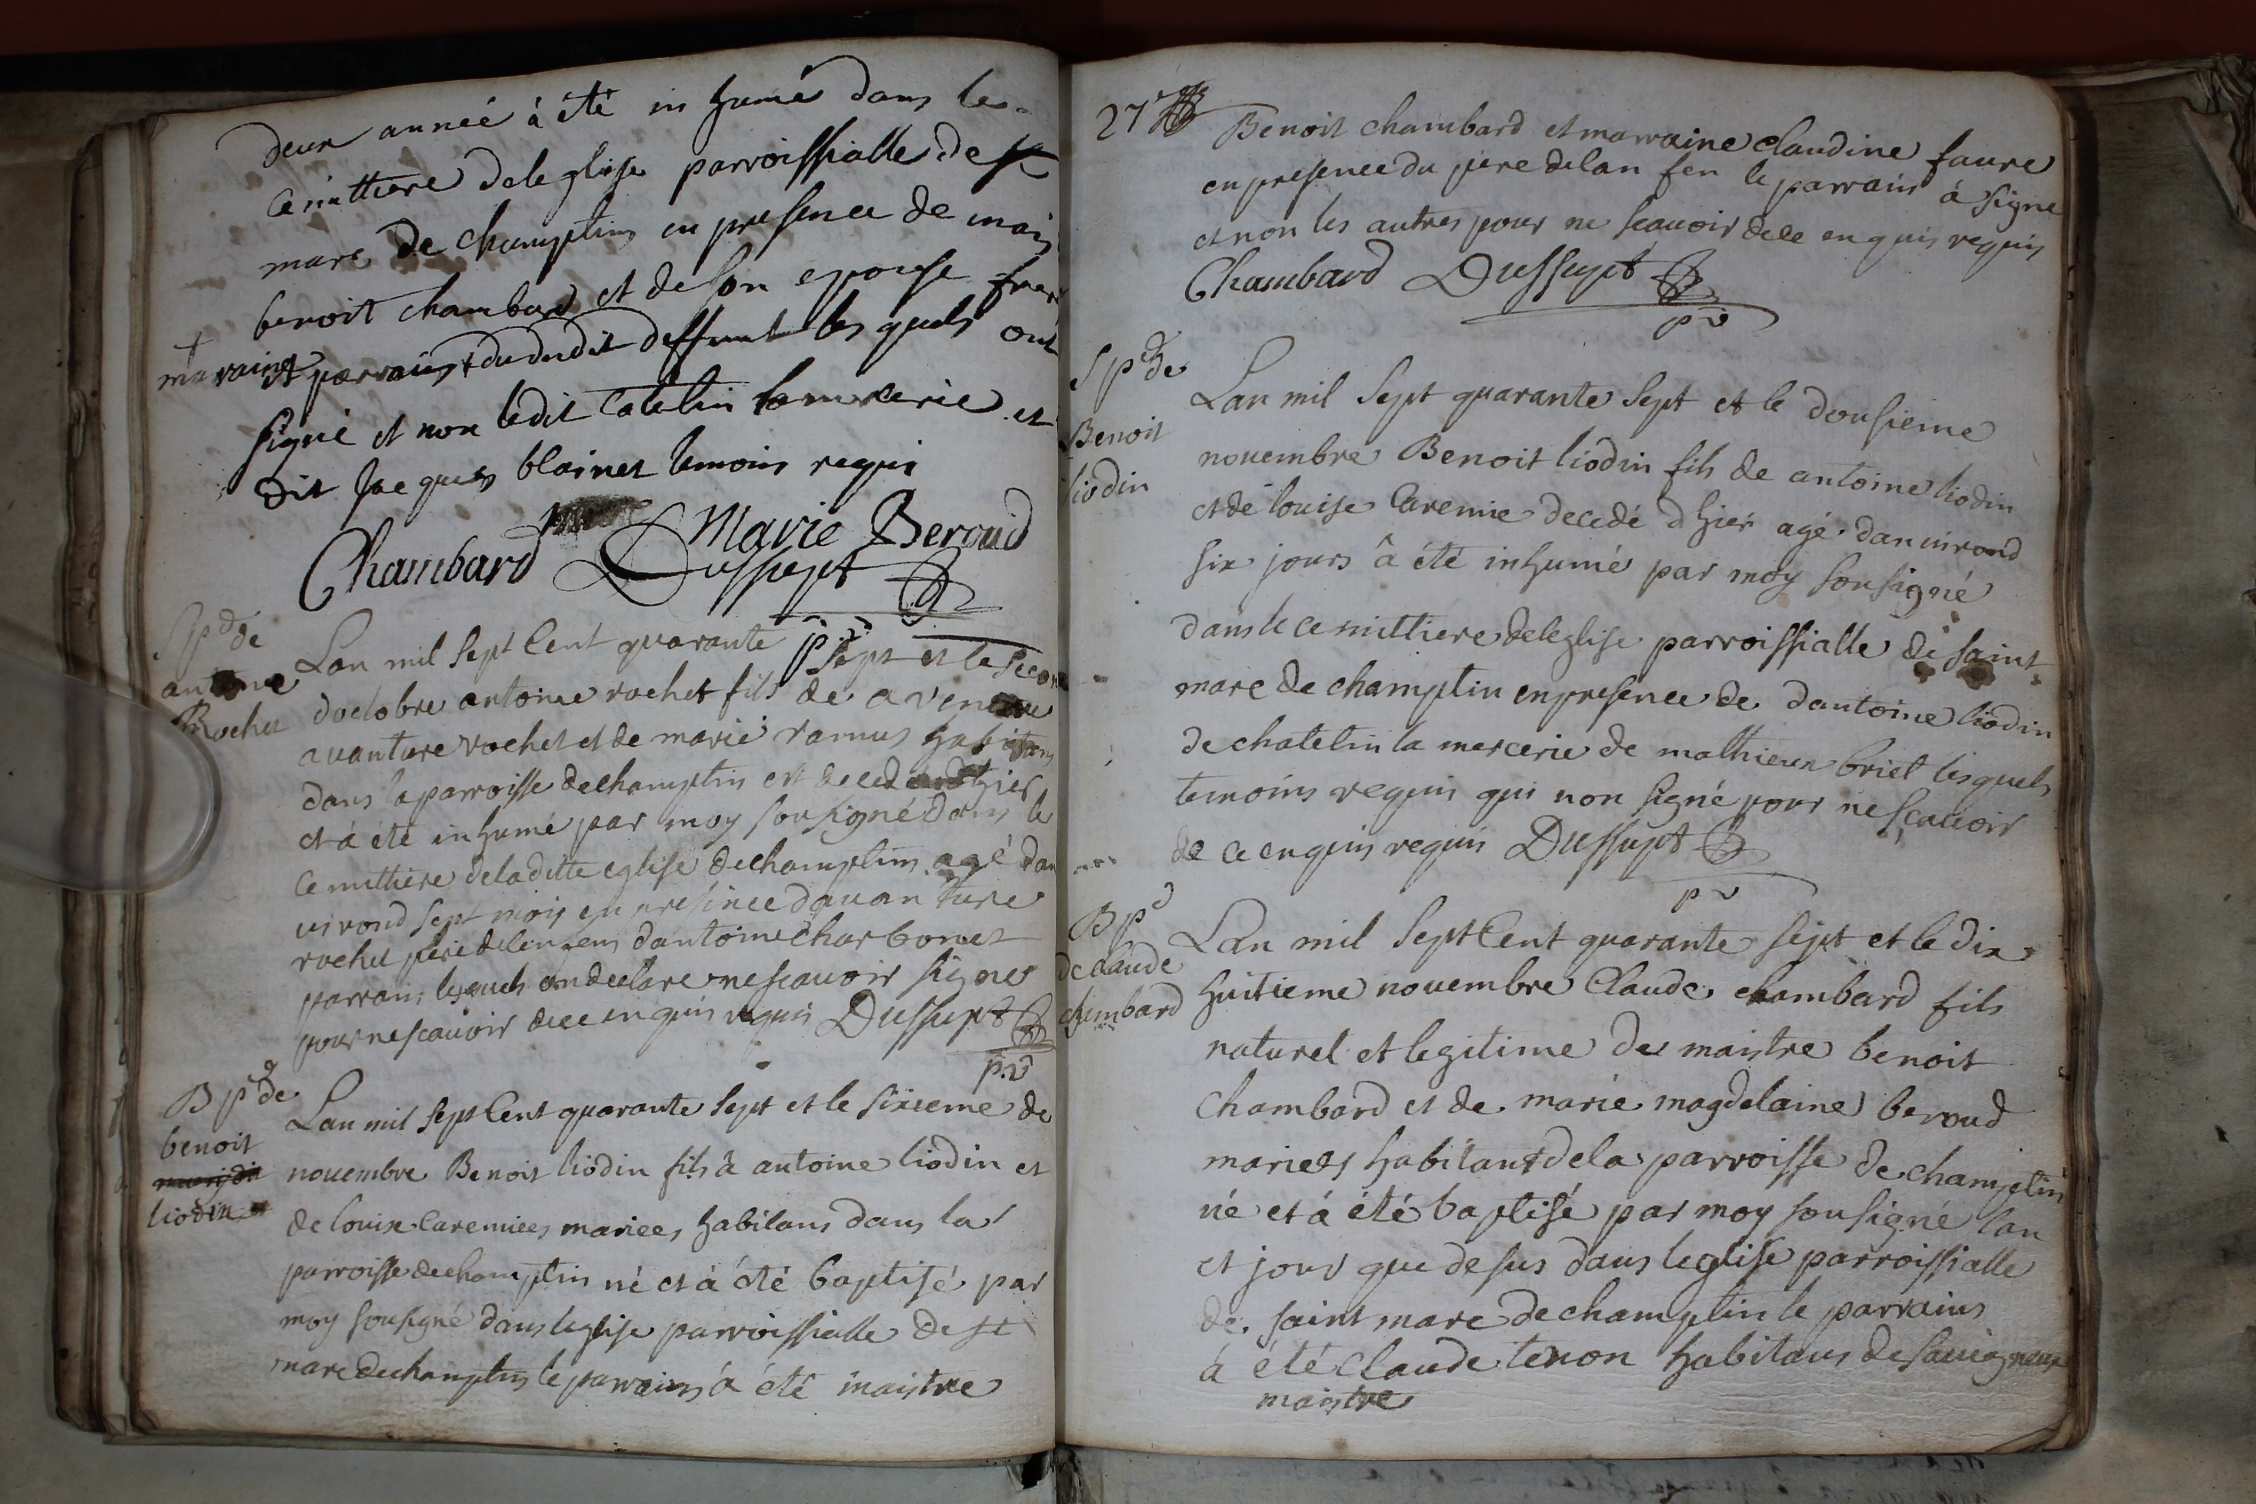 deux année à été in humé dans le
cemittiere de leglise parroissialle de st
marc de champtin en presence de mais
benoit chambard et de son epouse
maraine et parrains du dudit deffunt les quels ont
signé et non ledit Catelin lamercerie et
dit Jacques blainet temoins requi
Marie Beroud
Chambard Dussupt
p.v
Sp^d de
antoine
Rochet
Lan mil sept Cent quarante sept et le secon
doctobre antoine rochet fils de aventure
avanture rochet et de marie ramus habitans
dans la parroisse de champtin est decedé dhier
et à été inhumé par moy sousigné dans le
cemittiere de laditte eglise de champtin agé dan
virond sept mois en presence davanture
rochet pere de lenfens dantoine charbonet
parrain lesquels on declare ne scavoir signer
pour ne scavoir de ce en quis requis Dussupt
p.v
B p^d de
benoit
liodin
Lan mil sept Cent quarante sept et le sixieme de
novembre Benoit liodin fils à antoine liodin et
de louise Caremiees mariees habitans dans la
parroisse de champtin né et à été baptisé par
moy sousigné dans leglise parroissialle de st
marc de champtin le parrains à été maistre
27^e
Benoit chambard et marraine Claudine faure
en presence du pere de lan fen le parrain à signe
et non les autres pour ne scavoir de ce en quis requis
Chambard Dussupt
p v
S p^d de
Benoit
liodin
Lan mil sept quarante sept et le dousieme
novembre Benoit liodin fils de antoine liodin
et de louise Caremie decedé d hier agé danvirond
six jours à été inhumé par moy sousigné
dans le cemittiere de leglise parroissialle de saint
marc de champtin en presence de dantoine liodin
de chatelin la mercerie de mathieu briet lesquels
temoins requis qui non signé pour ne scavoir
de ce en quis requis Dussupt
p v
B p^d
de claude
chambard
Lan mil sept Cent quarante sept et le dix
huitieme novembre Claude chambard fils
naturel et legitime de maistre benoit
Chambard et de marie magdelaine beroud
mariees habitant de la parroisse de champtin
né et à été baptisé par moy sousigné lan
et jour que desus dans leglise parroissialle
de saint marc de champtin le parrains
à été Claude tenon habitans de savigneux
maistre